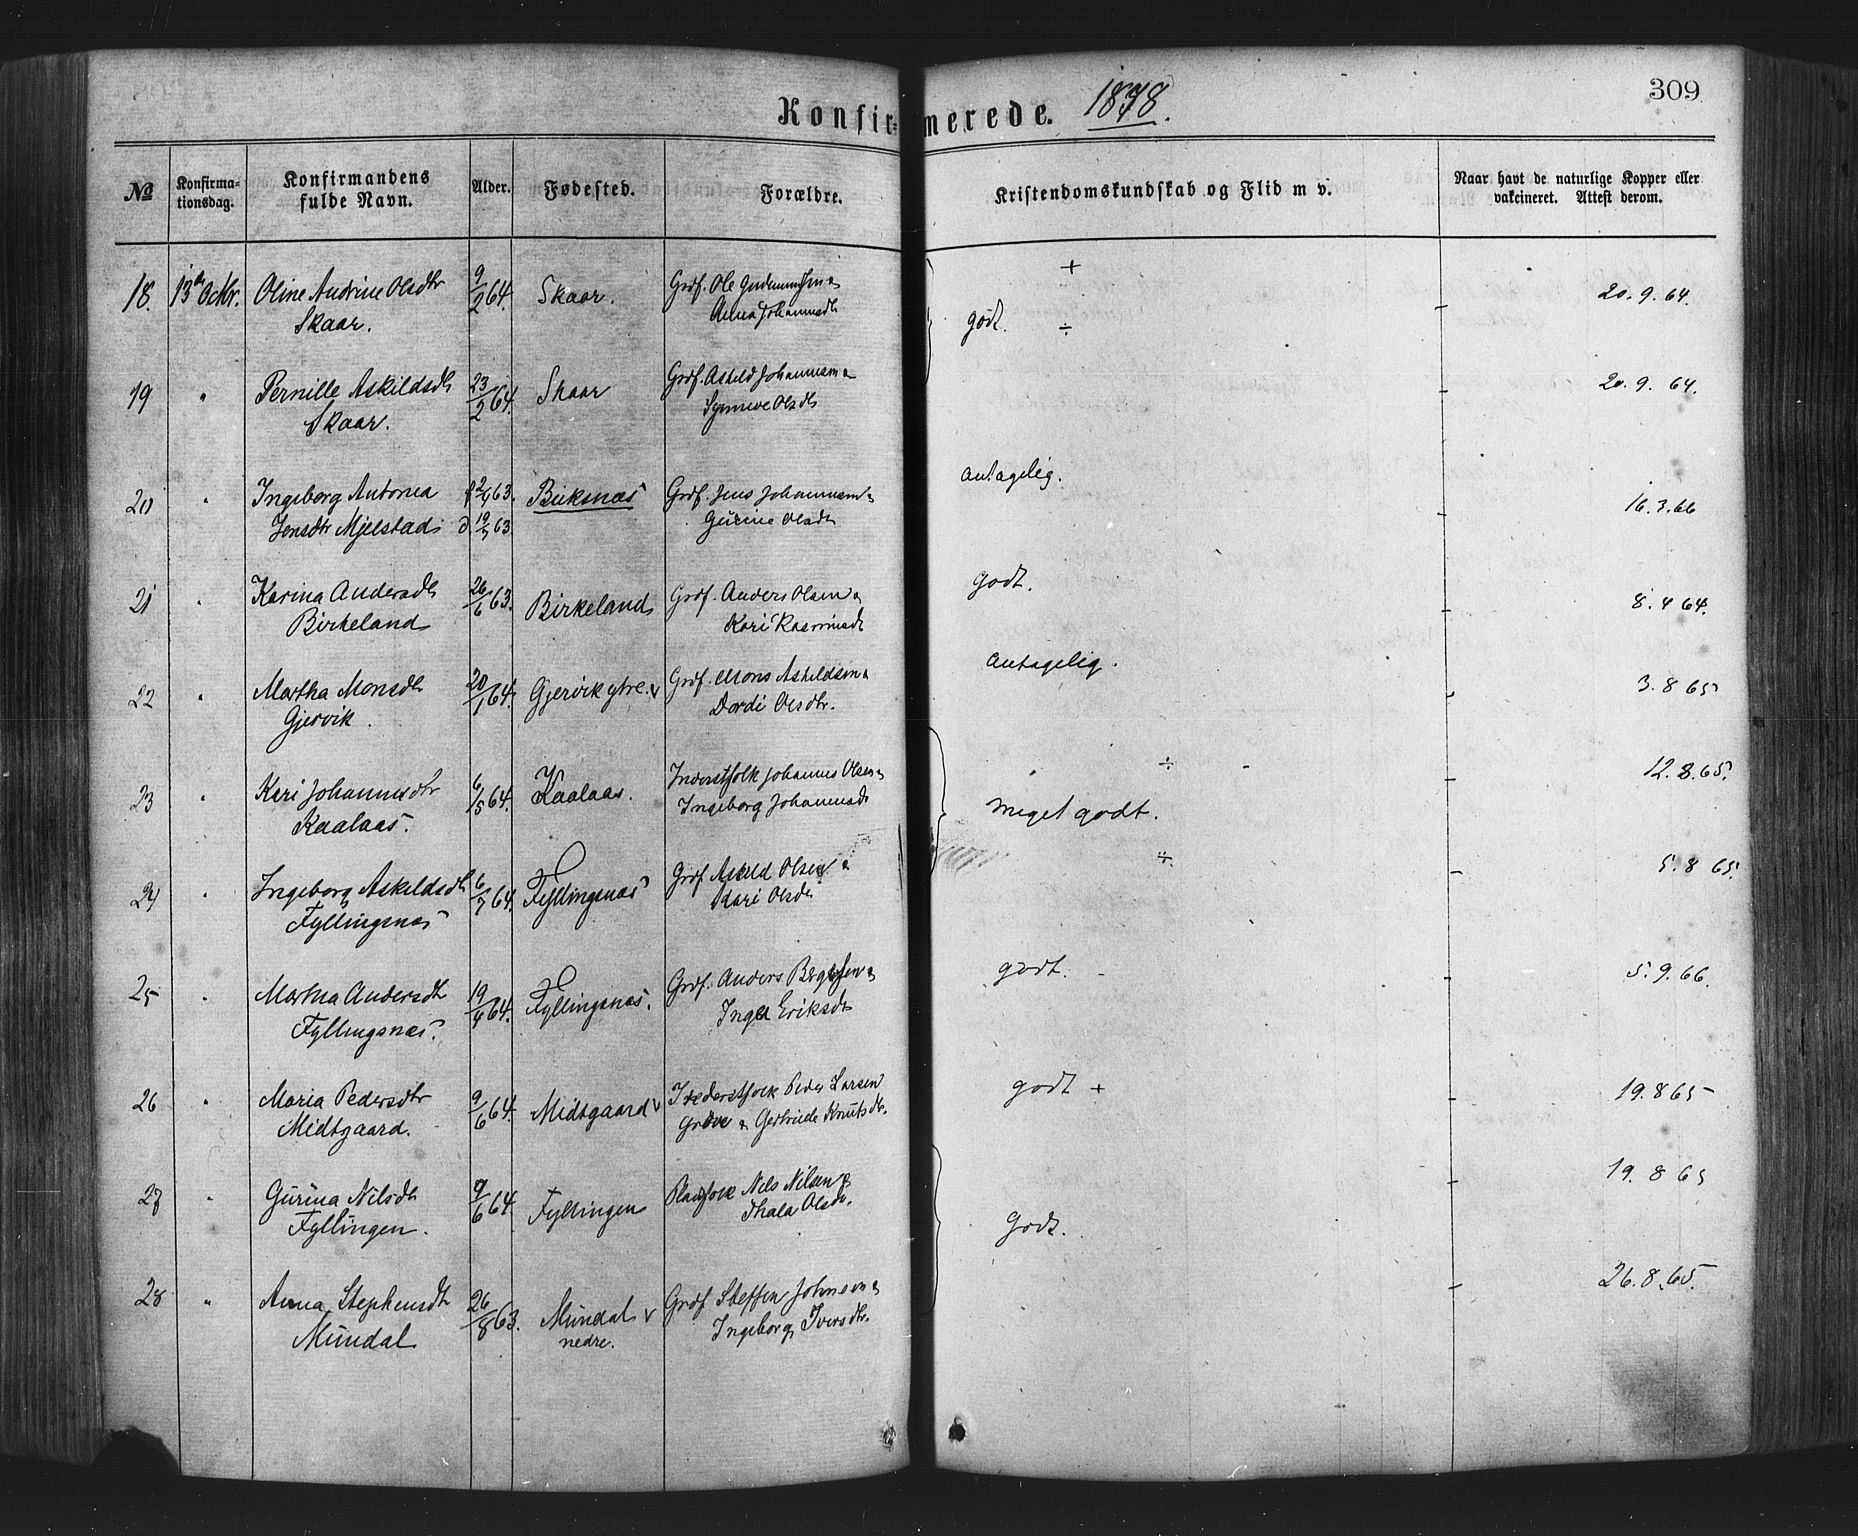 309
Konfirmerede. 1878.
No Konfirmationsdag. Konfirmandens fulde Navn. Alder. Fødested. Forældre. Kristendomskundskab og Flid m v. Naar havt de naturlige Kopper eller vakcineret. Attest derom.
18. 13de Octbr. Oline Andrine Olsdtr 9/2 64. Skaar. Grdf. Ole +
Skaar. Anna Johannesdtr godt. ÷ 20. 9. 64.
19 " Pernille Askildsdtr 23/2 64. Skaar Grdf. Askild Johannesen & 20. 9. 64.
Skaar. Synneve Olsdtr
20 " Ingeborg Antonia f 2/4 63. Birkenæs Grdf. Jens Johannesen & antagelig. 16. 3. 66
Jensdtr Mjelstad d. 19/5 63 Gurine Olsdtr
21 " Karina Andersdtr 26/6 63. Birkeland Grdf. Anders Olsen & godt. 8. 4 64.
Birkeland Kari Rasmusdtr
22 " Martha Monsdtr 20/1 64. Gjervik ytre. v Grdf. Mons Askildsen & antagelig. 3. 8 65
Gjervik. Dordi Olsdtr.
23 " Kari Johannesdtr 6/5 64. Kaalaas. Inderstfolk Johannes Olsen & ÷ 12. 8. 65.
Kaalaas. Ingeborg Johannesdtr meget godt.
24 " Ingeborg Askildsdtr 6/7 64. Fyllingsnæs Grdf Askild Olsen & ÷ 5. 8 65.
Fyllingsnæs Kari Olsdtr
25 " Martha Andersdtr 19/4 64. Fyllingsnæs. Grdf. Anders & godt. 5. 9. 66.
Fyllingsnæs. Inga Eriksdtr
26 " Maria Pedersdtr 9/6 64. Midtgaard v Inderstfolk Peder Larsen godt + 19. 8 65
Midtgaard. & Gertrude Knutsdtr.
27 " Gurina Nilsdtr 9/6 64. Fyllingen Pladsfolk Nels Nilsen & 19. 8 65
Fyllingen. Thala Olsdtr. Godt.
28 " Anna Stephensdtr 26/8 63. Mundal v Grdf Steffen Johnsen & 26. 8. 65.
Mundal nedre. Ingeborg Iversdtr.